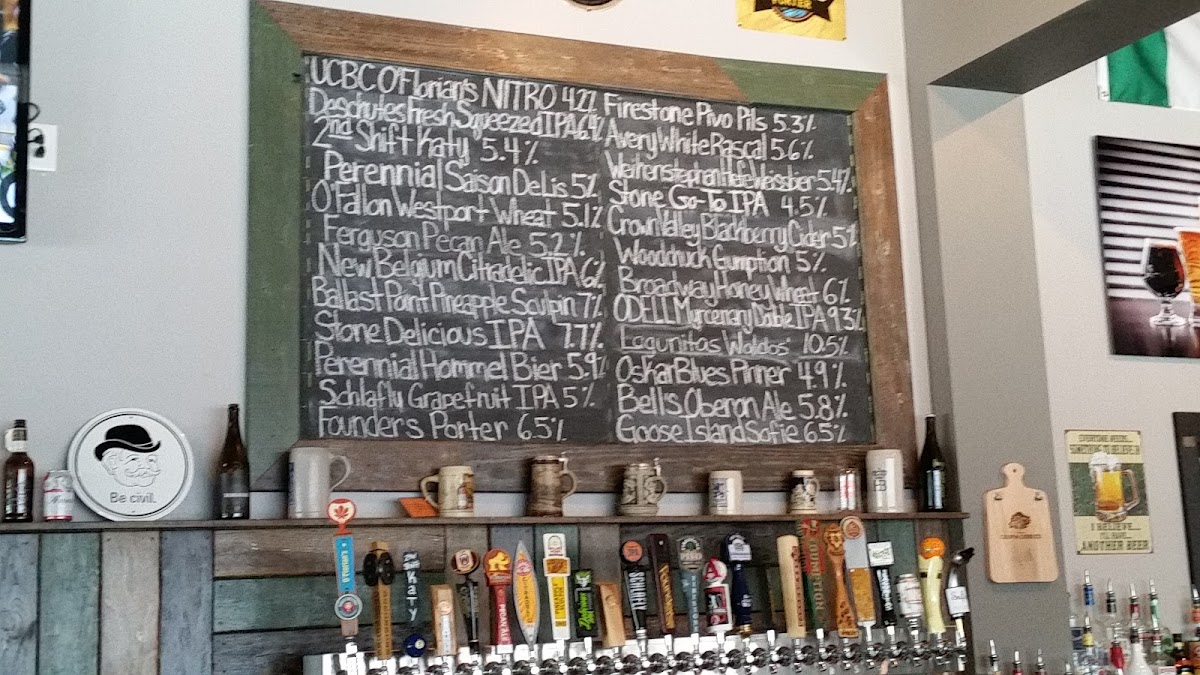 UCBC O'Florian's NITRO 4.2%
Deschutes Fresh Squeezed IPA 6.4%
2nd Shift Katy 5.4%
Perennial Saison De Lis 5%
O'Fallon Westport Wheat 5.1%
Ferguson Pecan Ale 5.2%
New Belgium Citradelic IPA 6%
Ballast Point Pineapple Sculpin 7%
Stone Delicious IPA 7.7%
Perennial Hommel Bier 5.9%
Schlafly Grapefruit IPA 5%
Founders Porter 6.5%
Firestone Pivo Pils 5.3%
Avery White Rascal 5.6%
Weihenstephan Hefe Weissbier 5.4%
Stone Go-To IPA 4.5%
Crown Valley Blackberry Cider 5%
Woodchuck Gumption 5%
Broadway Honey Wheat 6%
ODELL Myrcenary Doble IPA 9.3%
Lagunitas Waldos' 10.5%
Oskar Blues Pinner 4.9%
Bell's Oberon Ale 5.8%
Goose Island Sofie 6.5%
PORTER
Be civil.
EVERYONE NEEDS
SOMETHING TO BELIEVE IN
I BELIEVE
I'LL HAVE
ANOTHER BEER
KATY
PECAN ALE
GUMPTION